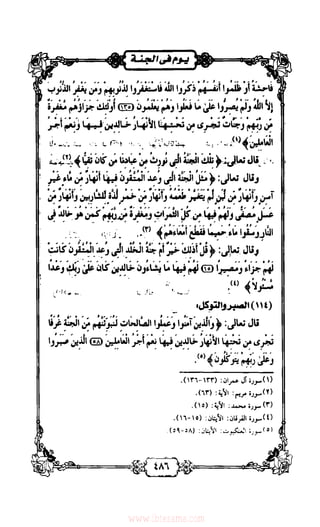 يوم في الجنة
فاحشة أو ظلموا أنفسهم ذكروا الله فاستغفروا لذنوبهم ومن يغفر الذنوب
إلا الله ولم يصروا على ما فعلوا وهم يعلمون (١٣٥) أولئك جزاؤهم مغفرة
من ربهم وجنات تجري من تحتها الأنهار خالدين فيها ونعم أجر
العاملين﴾(١).
وقال تعالى: ﴿تلك الجنة التي نورث من عبادنا من كان تقيا﴾(٢).
وقال تعالى: ﴿مثل الجنة التي وعد المتقون فيها أنهار من ماء غير
آسن وأنهار من لبن لم يتغير طعمه وأنهار من خمر لذة للشاربين وأنهار من
عسل مصفى ولهم فيها من كل الثمرات ومغفرة من ربهم كمن هو خالد في
النار وسقوا ماء حميما فقطع أمعاءهم﴾(٣).
وقال تعالى: ﴿قل أذلك خير أم جنة الخلد التي وعد المتقون كانت
لهم جزاء ومصيرا (١٥) لهم فيها ما يشاءون خالدين كان على ربك وعدا
مسئولا﴾(٤).
(١١٤) الصبر والتوكل:
قال تعالى: ﴿والذين آمنوا وعملوا الصالحات لنبوئنهم من الجنة غرفا
تجري من تحتها الأنهار خالدين فيها نعم أجر العاملين (٥٨) الذين صبروا
وعلى ربهم يتوكلون﴾(٥)
(١) سورة آل عمران: (١٣٣-١٣٦).
(٢) سورة مريم: الآية: (٦٣).
(٣) سورة محمد: الآية: (١٥).
(٤) سورة الفرقان: الآيتان: (١٥-١٦).
(٥) سورة العنكبوت: الآيتان: (٥٨-٥٩).
٤٨٦